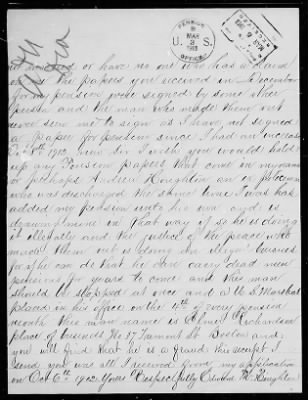 PENSION
MAR
3
1913
U. S.
OFFICE
or have no one
the papers you received in December
for my pension were signed by some other
person and the man who made them out
never sent me to sign as I have not signed
a paper for pension since I had an increase
Oct 6th 1902 now Sir I wish you would hold
up any Pension papers that come in my name
or perhaps Andrew Houghton an ex policeman
who was discharged the same time I was has
added my pension unto his own and is
drawing in that way if so he is doing
it illegally and the justice of the peace who
made them out is doing an illegal business
for if he can do that he can carry dead men
pensions for years to come and this man
should be stopped at once and a U S Marshal
placed in his office on the 4th of every pension
month this man name is Elmer Richardson
place of business No 37 Tremont St Boston and
you will find that he is a fraud this receipt I
send you was all I received from my application
on Oct 6th 1902 Yours Respectfully Edward H. Houghton